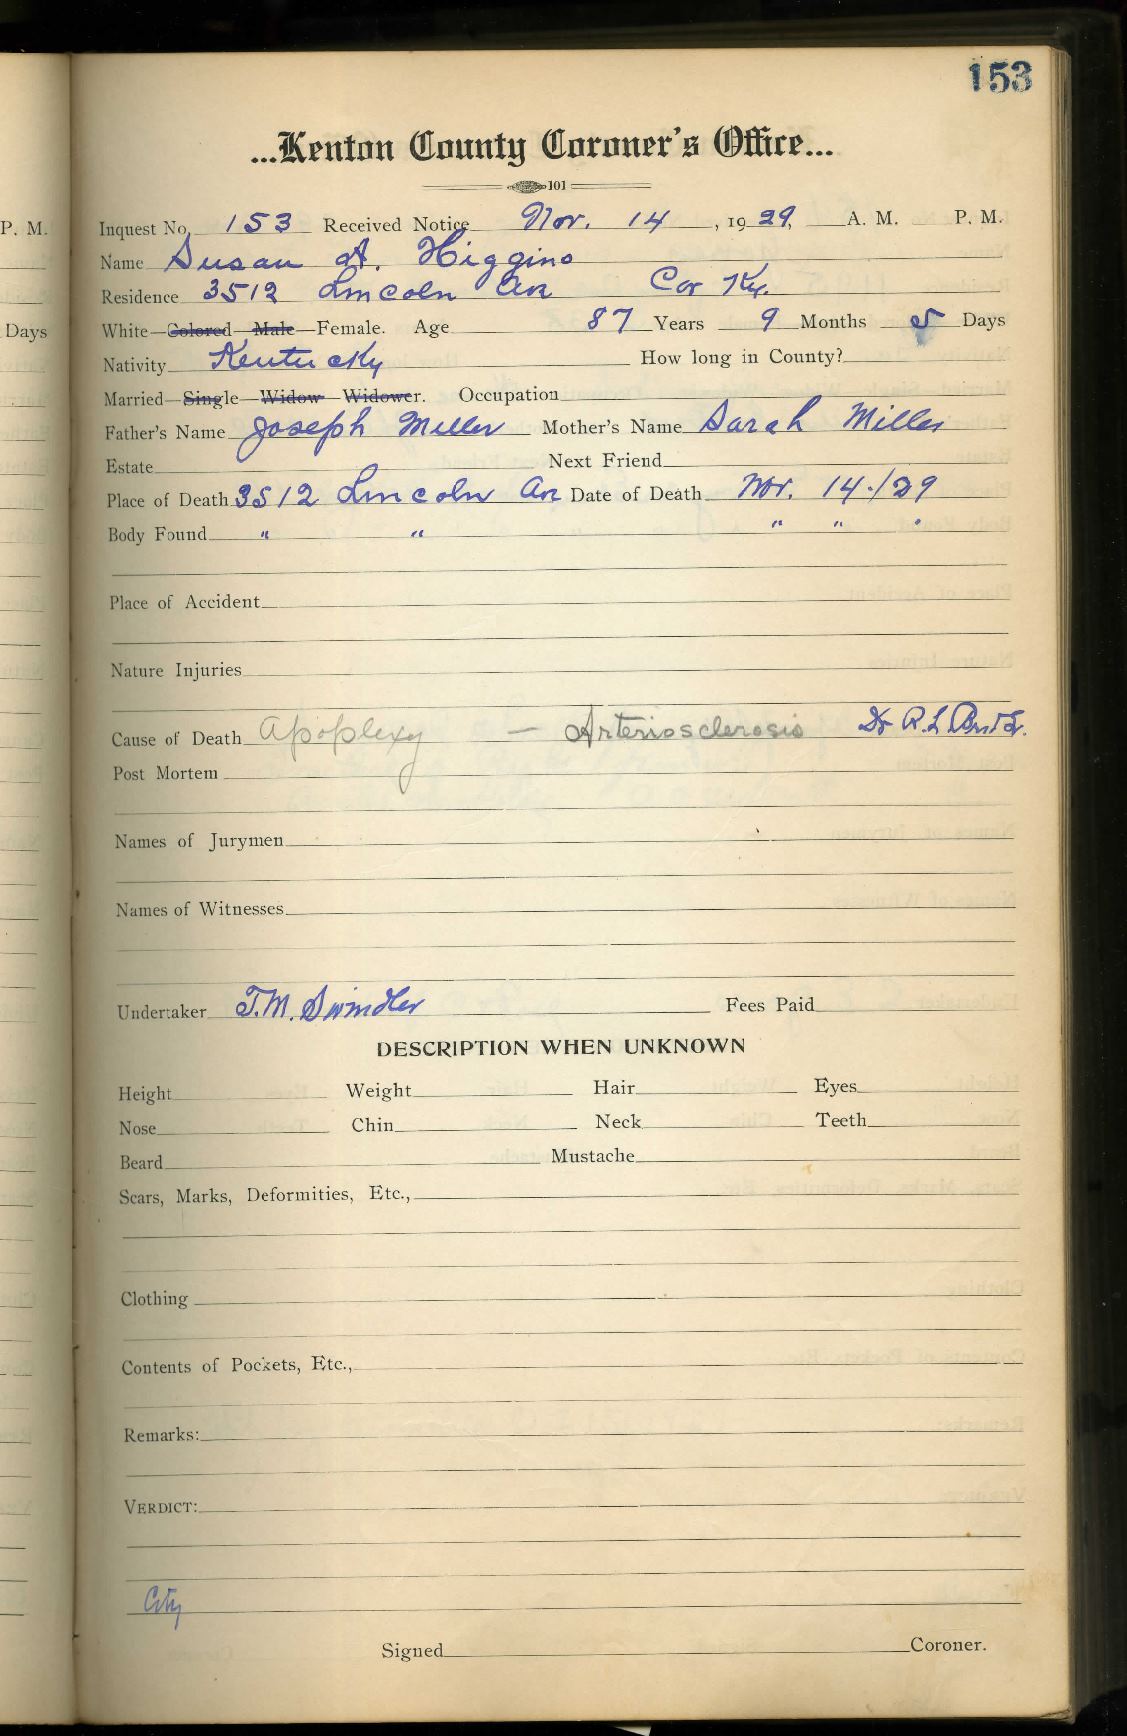 153
...Kenton County Coroner's Office...
101
P. M.
Inquest No. 153 Received Notice Nov. 14, 1929, A. M. P. M.
Name Susan A. Higgins
Residence 3512 Lincoln Av Cov Ky.
Days
White—Colored—Male—Female. Age 87 Years 9 Months 5 Days
Nativity Kentucky How long in County?
Married—Single—Widow—Widower. Occupation
Father's Name Joseph Miller Mother's Name Sarah Miller
Estate Next Friend
Place of Death 3512 Lincoln Av Date of Death Nov. 14./29
Body Found " " " " "
Place of Accident
Nature Injuries
Cause of Death Apoplexy — Arteriosclerosis Dr R. L.
Post Mortem
Names of Jurymen
Names of Witnesses
Undertaker T. M. Swindler Fees Paid
DESCRIPTION WHEN UNKNOWN
Height Weight Hair Eyes
Nose Chin Neck Teeth
Beard Mustache
Scars, Marks, Deformities, Etc.,
Clothing
Contents of Pockets, Etc.,
Remarks:
VERDICT:
City
Signed Coroner.